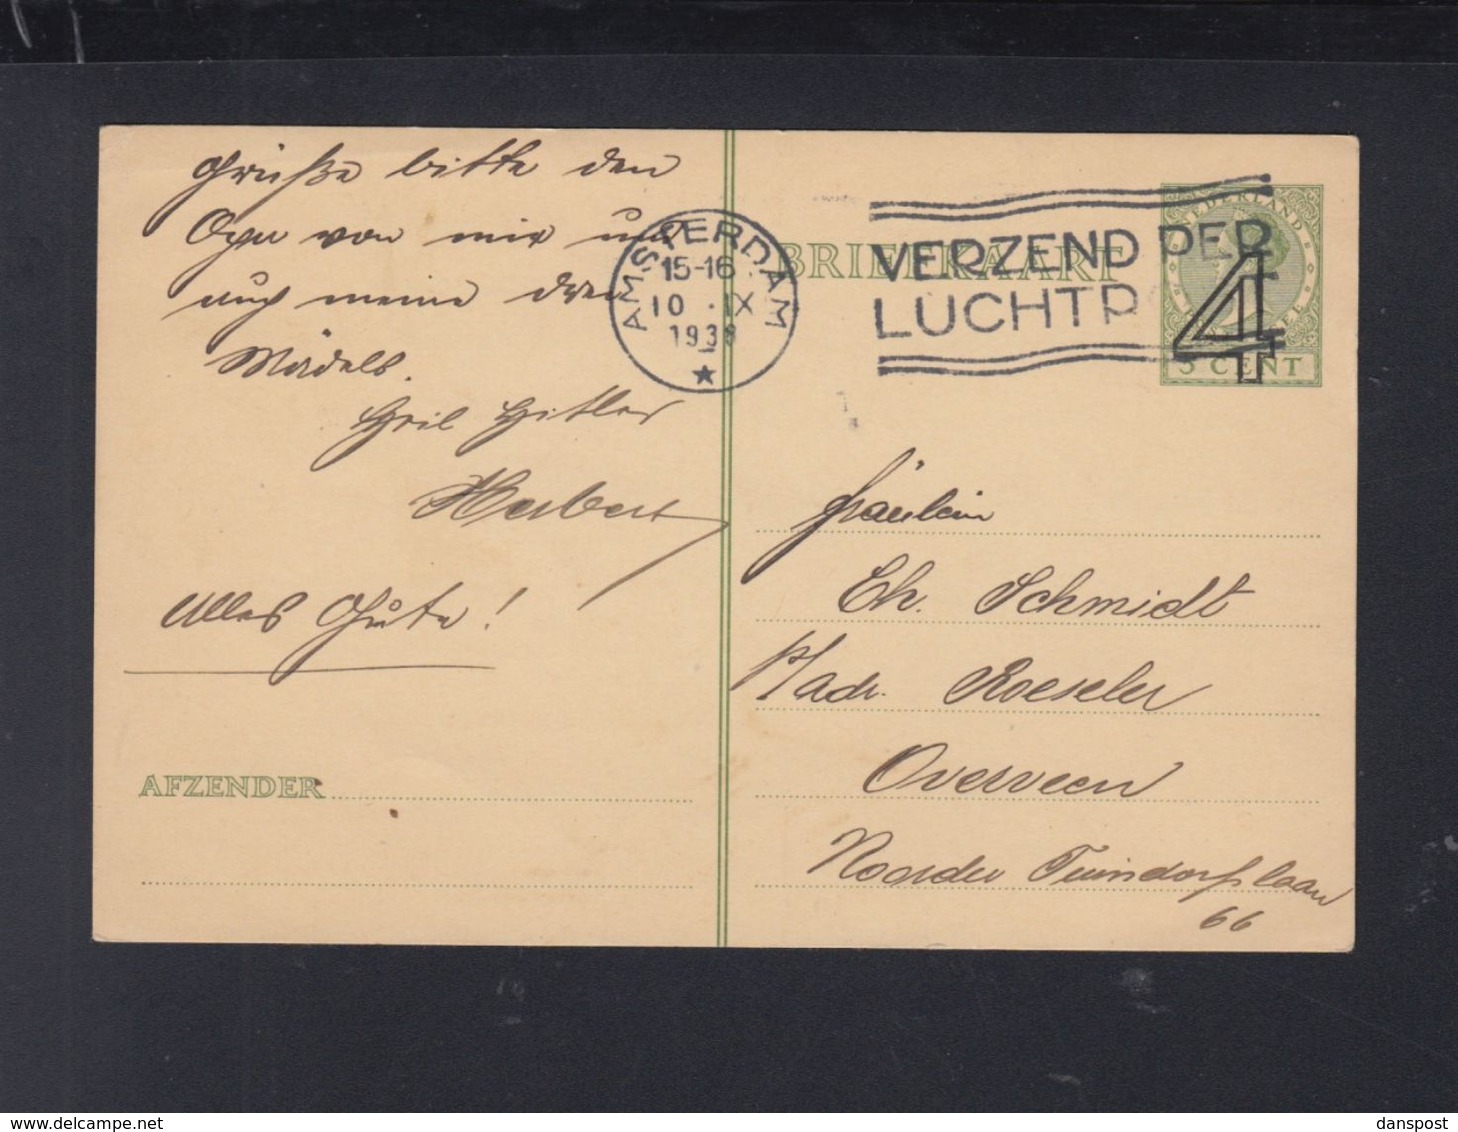 Grüße bitte den
Opa von mir und
auch meine drei
Mädels.
Heil Hitler
Herbert
Alles Gute!
AFZENDER
AMSTERDAM
15-16
10 .IX
1938
BRIEFKAART
VERZEND PER
LUCHTP
NEDERLAND
4
5 CENT
Fräulein
Eh. Schmidt
p/adr. Roeseler
Overveen
Noorder Tuindorpslaan
66
danspost